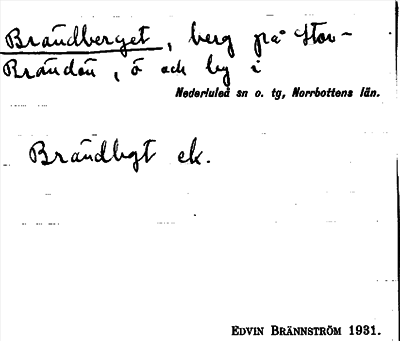 Brändberget, berg på Stor-
Brändön, ö och by i
Nederluleå sn o. tg, Norrbottens län.
Brändbgt ek.
EDVIN BRÄNNSTRÖM 1931.